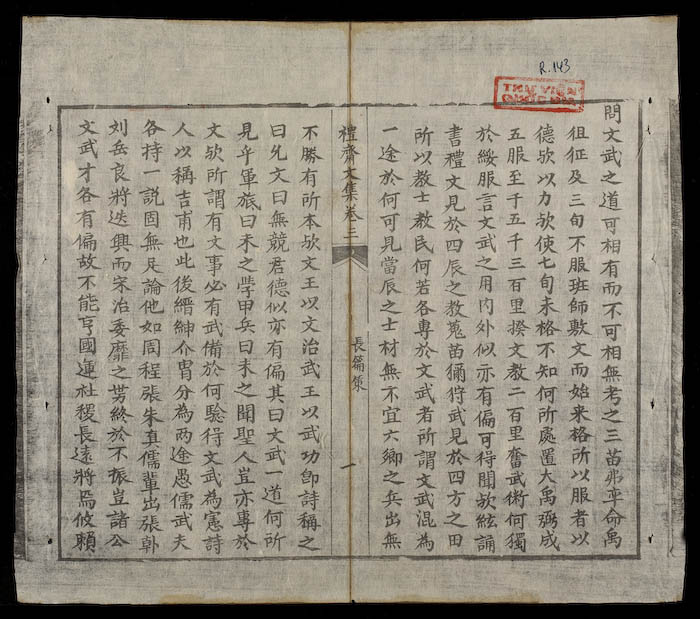 R.143
THƯ VIỆN
QUỐC GIA
問文武之道可相有而不可相無考之三苗弗率命禹
徂征及三旬不服班師敷文而始来格所以服者以
德欤以力欤使七旬未格不知何所處置大禹弼成
五服至于五千三百里揆文教二百里奮武術何獨
於綏服言文武之用内外似亦有偏可得聞欤絃誦
書禮文見於四辰之教蒐苗獮狩武見於四方之田
所以教士教民何若各專於文武者所謂文武混為
一途於何可見當辰之士材無不宜六卿之兵出無
禮齋文集卷三 長篇策 一
不勝有所本欤文王以文治武王以武功卽詩稱之
曰允文曰無競君德似亦有偏其曰文武一道何所
見乎軍旅曰未之學甲兵曰未之聞聖人豈亦專於
文欤所謂有文事必有武備於何驗得文武為憲詩
人以稱吉甫也此後縉紳介胄分為兩途愚儒武夫
各持一説固無足論他如周程張朱真儒輩出張韓
刘岳良將迭興而宋治委靡之势終於不振豈諸公
文武才各有偏故不能亨國運社稷長遠將焉攸賴